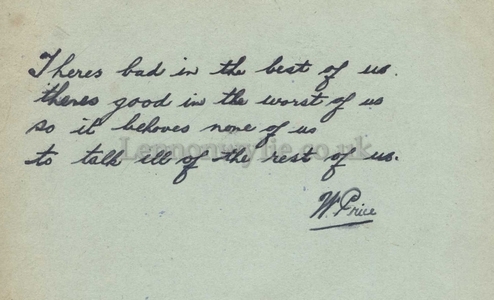 Theres bad in the best of us.
theres good in the worst of us
so it behoves none of us
Lennonwylie.co.uk
to talk ill of the rest of us.
W. Price